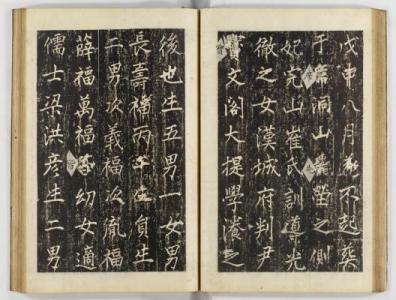 戊申八月不起葬
于洞山塋之側
妃完山崔氏訓導光
徵之女漢城府判尹
文閣大提學之
後也生五男一女男
長壽福丙午生員生
二男次義福次胤福
薛福萬福幼女適
儒士梁洪彦生二男